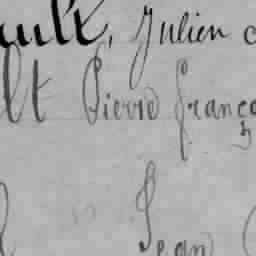 ault, Julien
lt Pierre franço
Jean